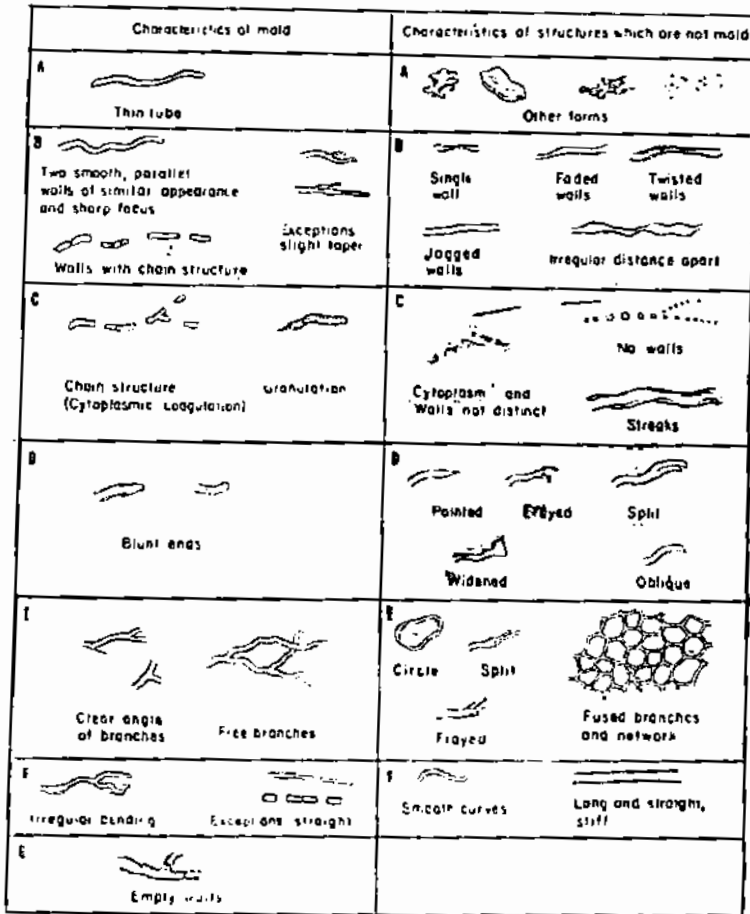 Characteristics of mold
Characteristics of structures which are not mold
A
Thin tube
A
Other forms
B
Two smooth, parallel
walls of similar appearance
and sharp focus
Exceptions
slight taper
Walls with chain structure
B
Single
wall
Faded
walls
Twisted
walls
Jagged
walls
Irregular distance apart
C
Chain structure
(Cytoplasmic coagulation)
Granulation
C
No walls
Cytoplasm and
Walls not distinct
Streaks
D
Blunt ends
D
Pointed
Frayed
Split
Widened
Oblique
E
Clear angle
of branches
Free branches
E
Circle
Split
Frayed
Fused branches
and network
F
Irregular bending
Exceptions straight
F
Smooth curves
Long and straight,
stiff
G
Empty walls